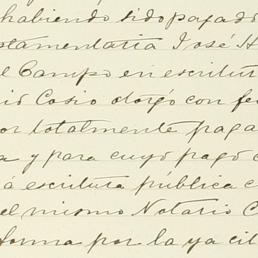 habiendo sido pagado
stamentaria José H
l Campo en escritur
io Cosio otorgó con fe
or totalmente paga
a y para cuyo pago
á escritura pública c
el mismo Notario C
forma por la ya cit